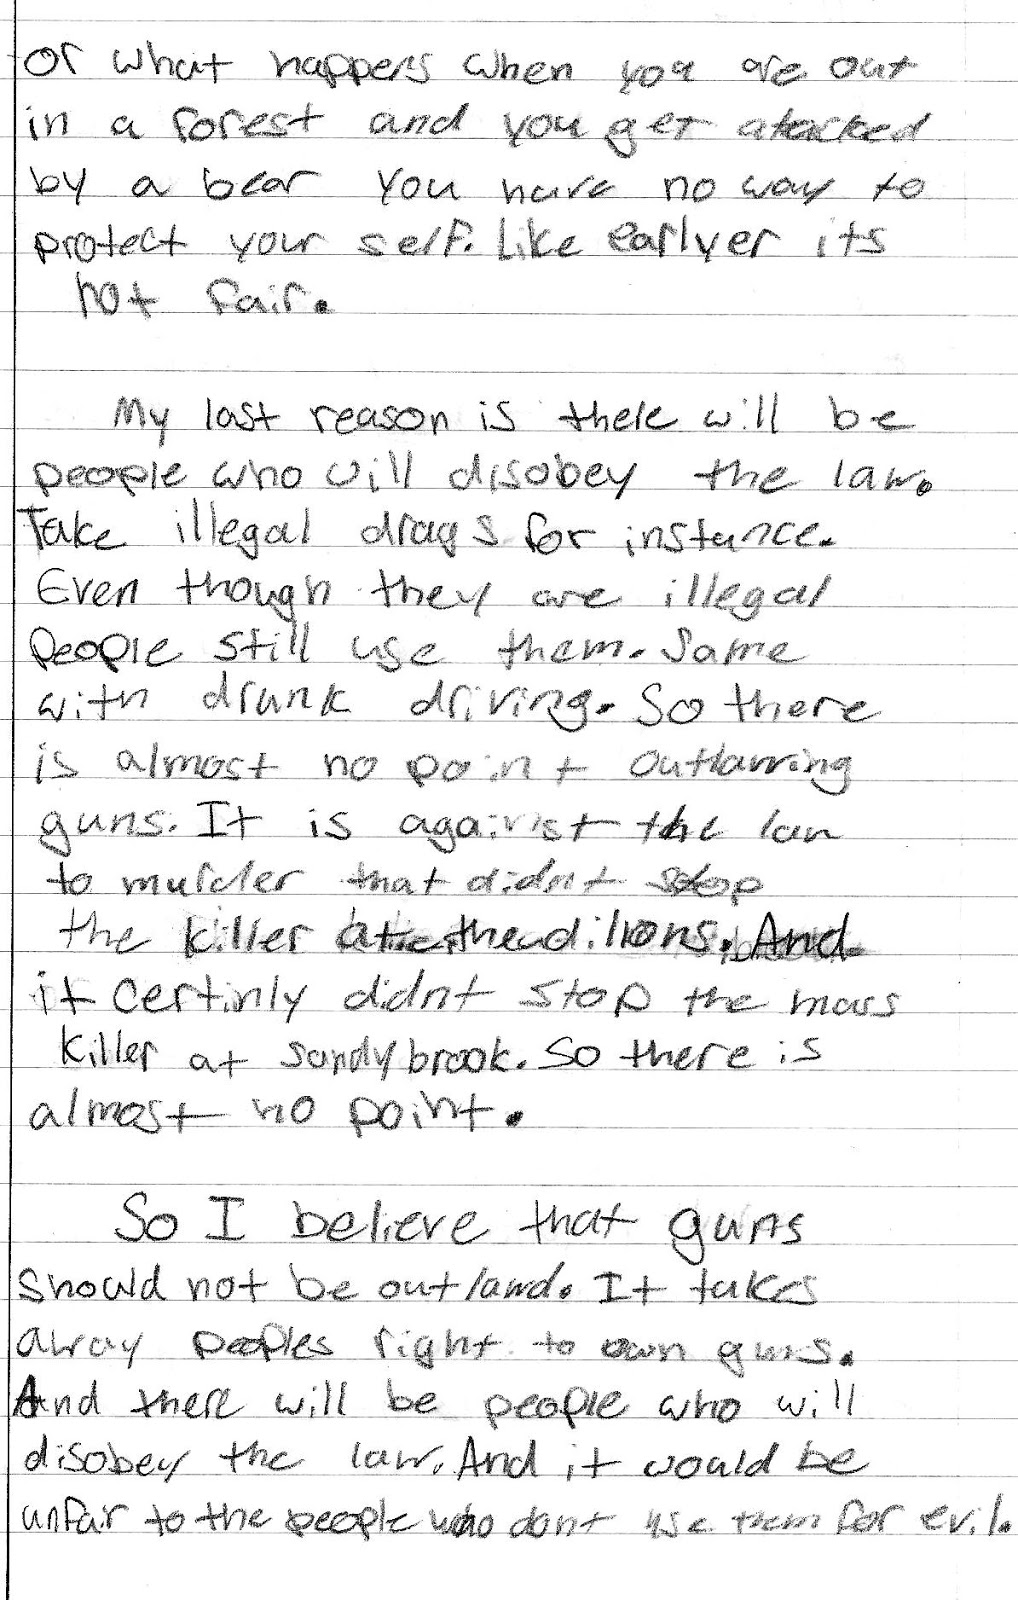 Or what happens when you are out
in a forest and you get atacked
by a bear you have no way to
protect your self. Like earlyer its
not fair.
My last reason is there will be
people who will disobey the law.
Take illegal drugs for instance.
Even though they are illegal
People still use them. Same
with drunk driving. So there
is almost no point outlawing
guns. It is against the law
to murder that didnt stop
the killer
. And
it certinly didnt stop the mass
killer at sandybrook. So there is
almost no point.
So I believe that guns
should not be outlawd. It takes
away peoples right to own guns.
And there will be people who will
disobey the law. And it would be
unfair to the people who dont use them for evil.